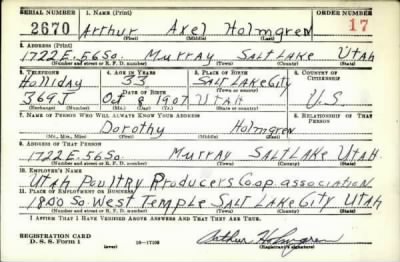 SERIAL NUMBER 1. NAME (Print) ORDER NUMBER
2670 Arthur Axel Holmgren 17
(First) (Middle) (Last)
2. ADDRESS (Print)
1722 E. 56 So. Murray Salt Lake Utah
(Number and street or R. F. D. number) (Town) (County) (State)
3. TELEPHONE 4. AGE IN YEARS 5. PLACE OF BIRTH 6. COUNTRY OF CITIZENSHIP
Holliday 33 Salt Lake City
(Town or county)
DATE OF BIRTH
369 Oct 8 1907 Utah U.S.
(Exchange) (Number) (Mo.) (Day) (Yr.) (State or country)
7. NAME OF PERSON WHO WILL ALWAYS KNOW YOUR ADDRESS 8. RELATIONSHIP OF THAT PERSON
Dorothy Holmgren
(Mr., Mrs., Miss) (First) (Middle) (Last)
9. ADDRESS OF THAT PERSON
1722 E. 56 So. Murray Salt Lake Utah
(Number and street or R. F. D. number) (Town) (County) (State)
10. EMPLOYER'S NAME
Utah Poultry Producers Coop. association
11. PLACE OF EMPLOYMENT OR BUSINESS
1800 So. West Temple Salt Lake City Utah
(Number and street or R. F. D. number) (Town) (County) (State)
I AFFIRM THAT I HAVE VERIFIED ABOVE ANSWERS AND THAT THEY ARE TRUE.
REGISTRATION CARD
D. S. S. Form 1 (over) 16—17105 Arthur Holmgren